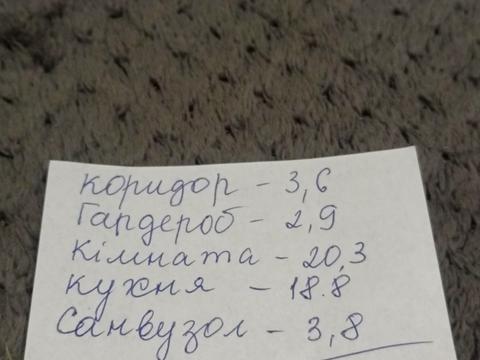 коридор - 3,6
Гардероб - 2,9
Кімната - 20,3
кухня - 18.8
Санвузол - 3,8